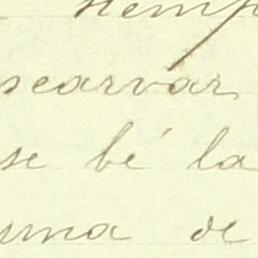 searvar
se bé la
una de